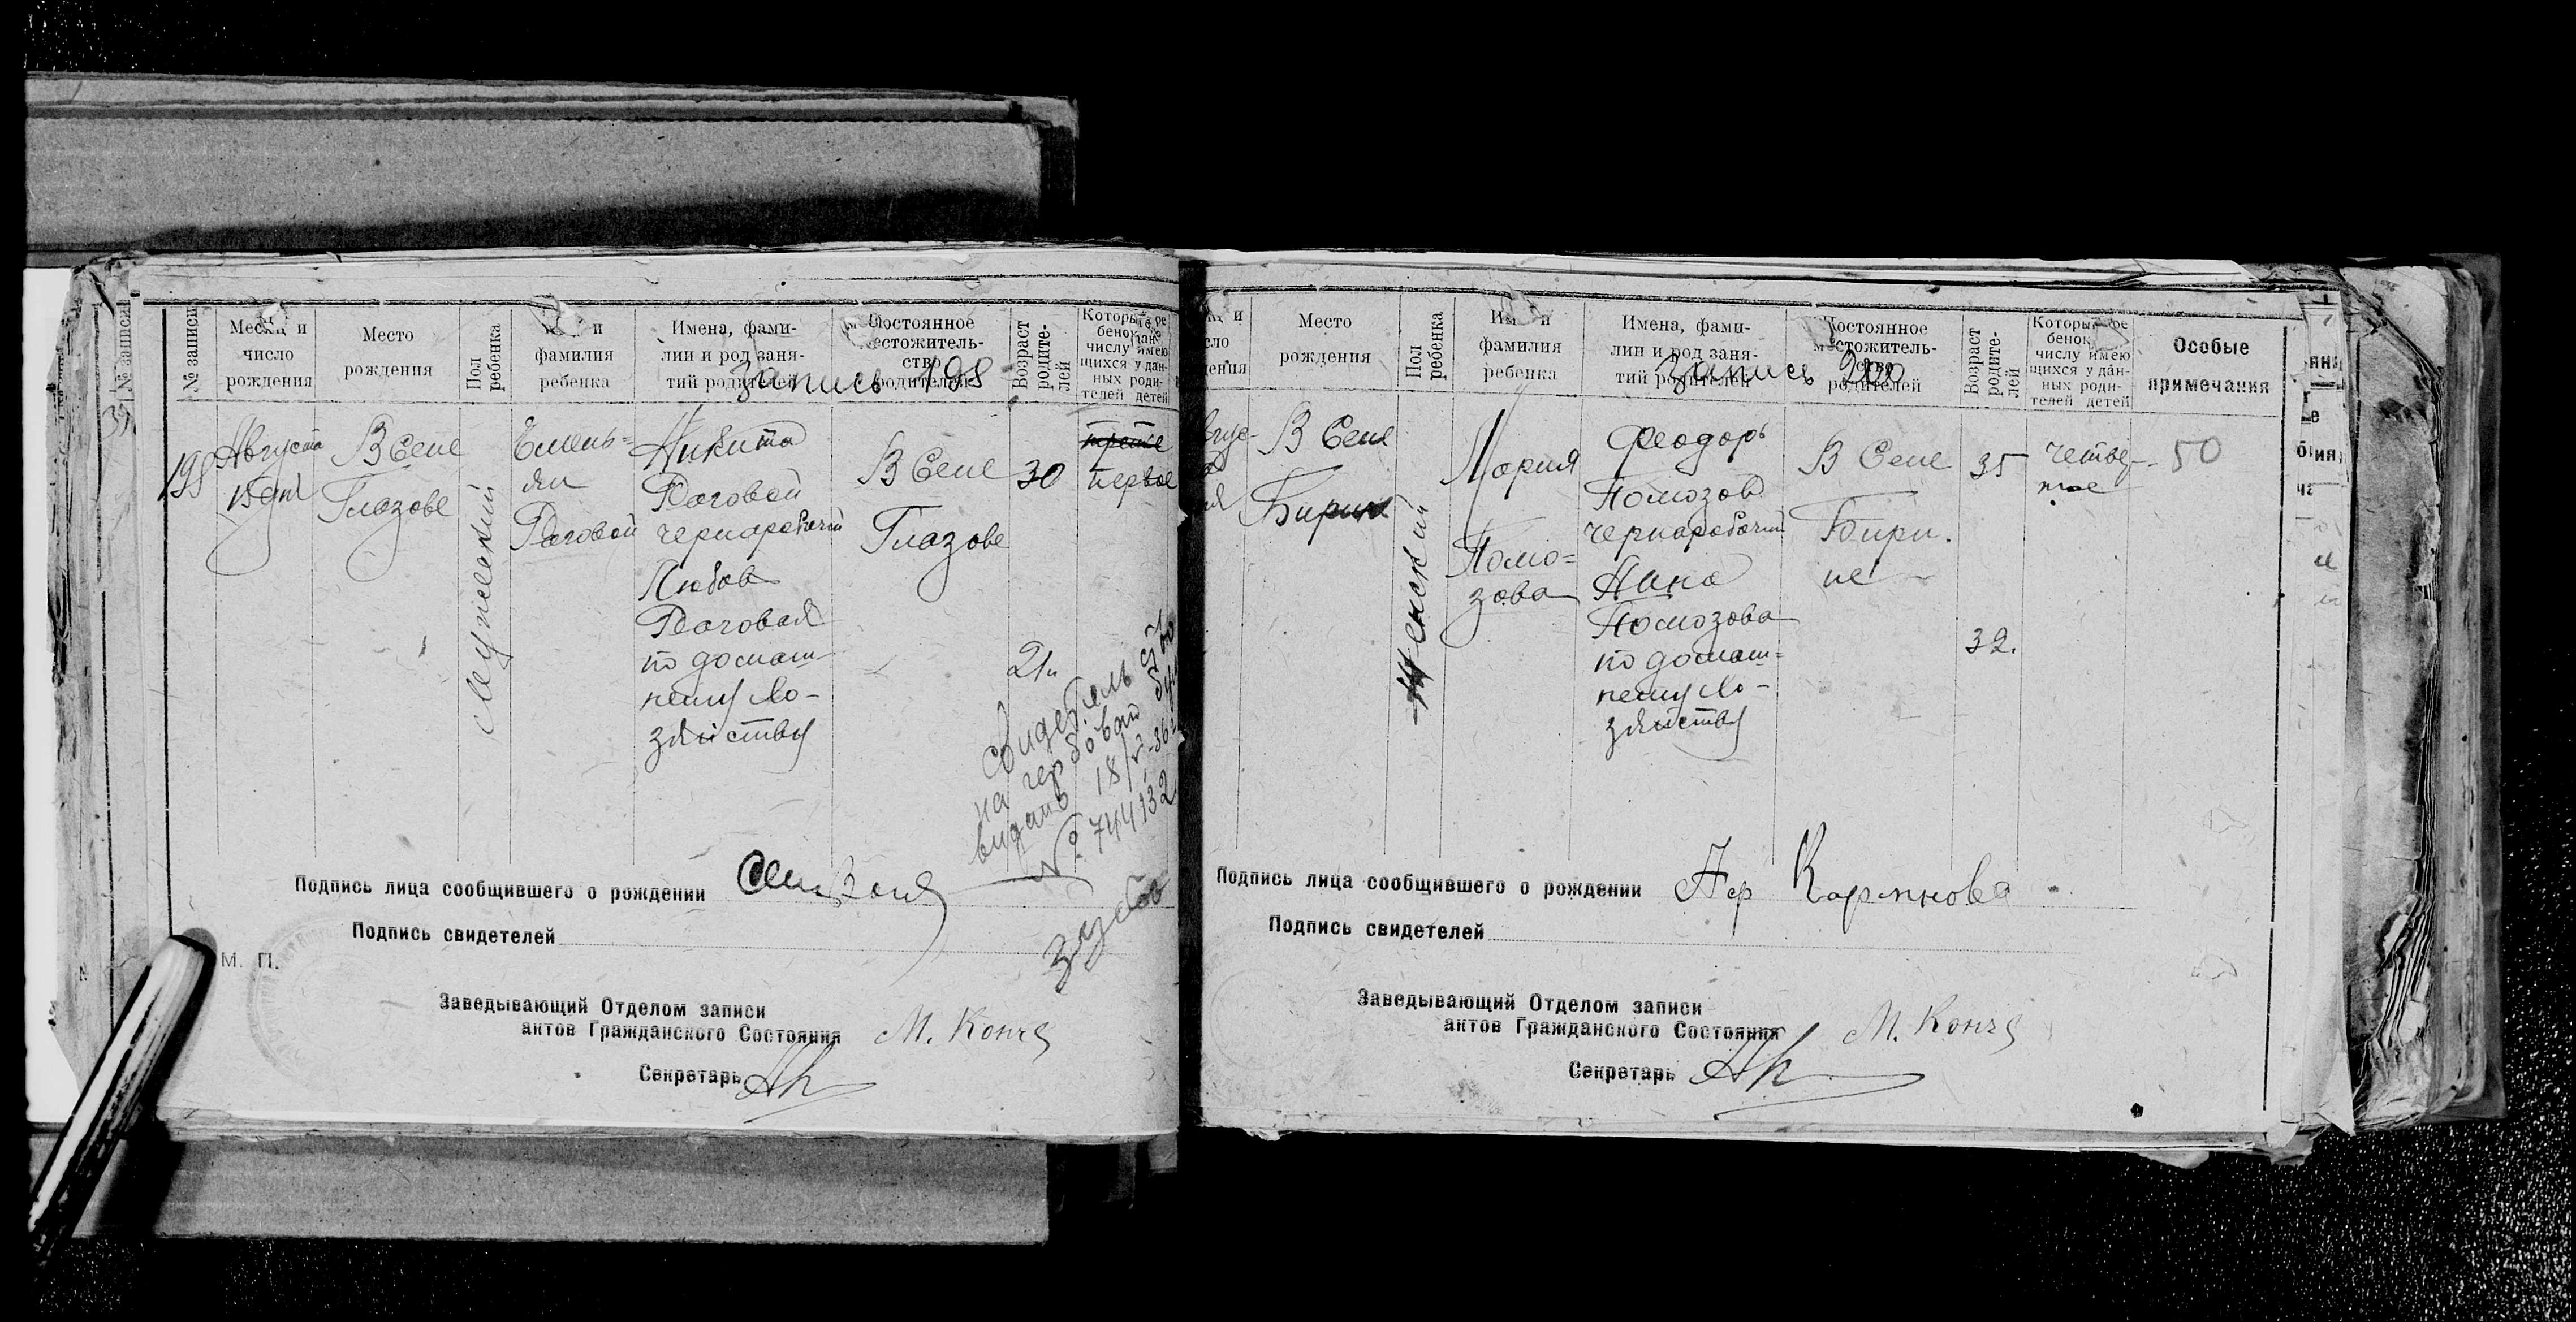 № записи
Месяц и
число
рождения
Место
рождения
Пол
ребенка
и
фамилия
ребенка
Имена, фами-
лии и род заня-
тий родителей
Постоянное
местожитель-
ство
родителей
Возраст
родите-
лей
Который ре
бенок
числу имею
щихся у дан-
ных роди-
телей детей
запись 198
198
Августа
15 дня
В Селе
Глазове
Мужеский
Емель=
ян
Роговой
Никита
Роговой
чернорабочий
Любов
Роговая
по домаш-
нему хо-
зяйству
В Селе
Глазове
30
21
третье
первое
свидетель
на гербовой
выдано 18/V-36
№ 744132
Подпись лица сообщившего о рождении
Подпись свидетелей
М. П.
Заведывающий Отделом записи
актов Гражданского Состояния М. Конч
Секретарь
Место
рождения
Пол
ребенка
Имя и
фамилия
ребенка
Имена, фами-
лии и род заня-
тий родителей
Постоянное
местожитель-
ство
родителей
Возраст
родите-
лей
Который ре
бенок
числу имею
щихся у дан-
ных роди-
телей детей
Особые
примечания
запись 200
В Селе
Бирине
Женский
Мария
Помо=
зова
Феодоръ
Помозов
чернорабочий
Анна
Помозова
по домаш=
нему хо-
зяйству
В Селе
Бири.
не
35
32.
четвер-
тое
50
Подпись лица сообщившего о рождении
Подпись свидетелей
Заведывающий Отделом записи
актов Гражданского Состояния М. Конч
Секретарь